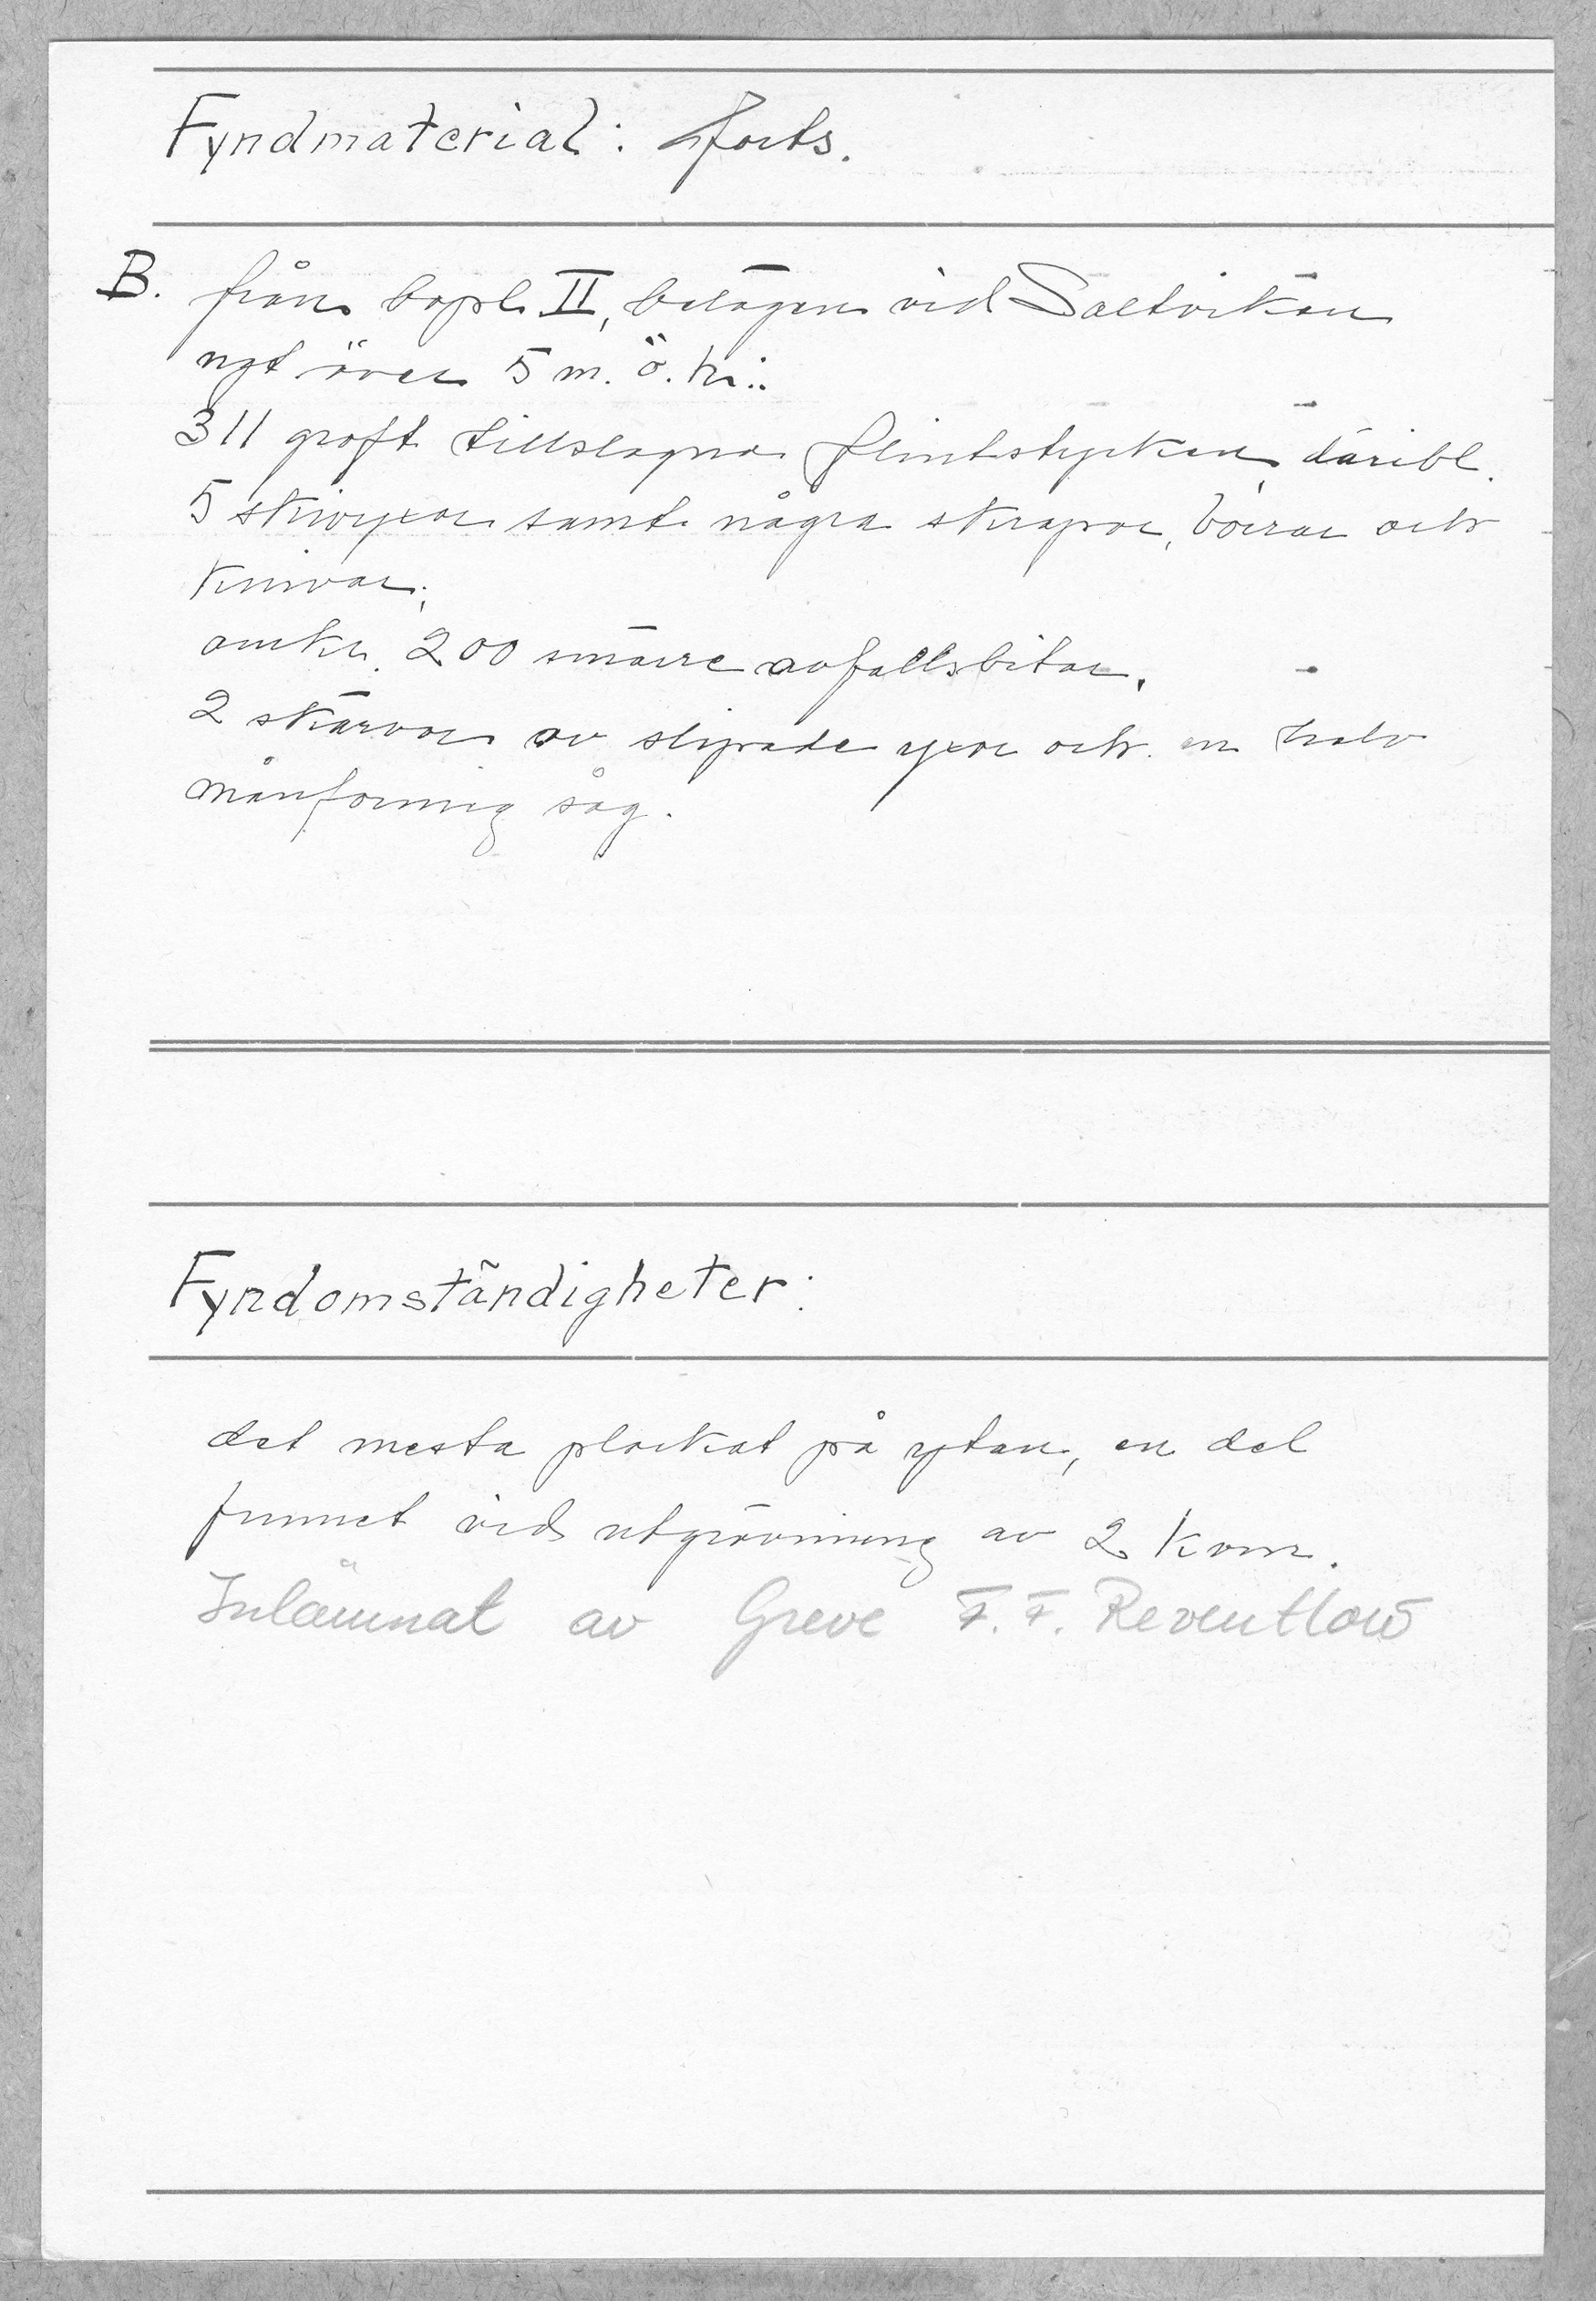 Fyndmaterial: forts.
B. från bopl. II, belägen vid Saltvikan
ngt över 5 m. ö. h.:
311 groft tillslagna flintstycken, däribl.
5 skivyxor samt några skrapor, borrar och
knivar;
omkr. 200 smärre avfallsbitar,
2 skärvor av slipade yxor och en halv
månformig såg.
Fyndomständigheter:
det mesta plockat på ytan, en del
funnet vid utgrävning av 2 kvm.
Inlämnat av Greve F. F. Reventlow